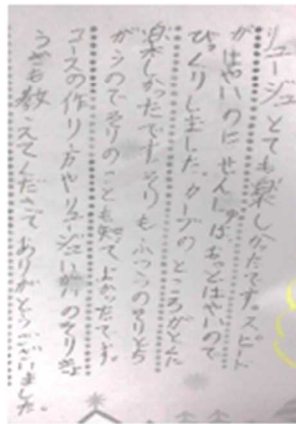 リュージュとても楽しかったです。スピード
がはやいのにせんしゅは、もっとはやいので
びっくりしました。カーブのところがとくに
楽しかったです。そりもふつうのそりとち
がうのでそりのことも知てよかったです。
コースの作り方やリュージュいがいのそりきょ
うぎも教えてくださてありがとうございました。